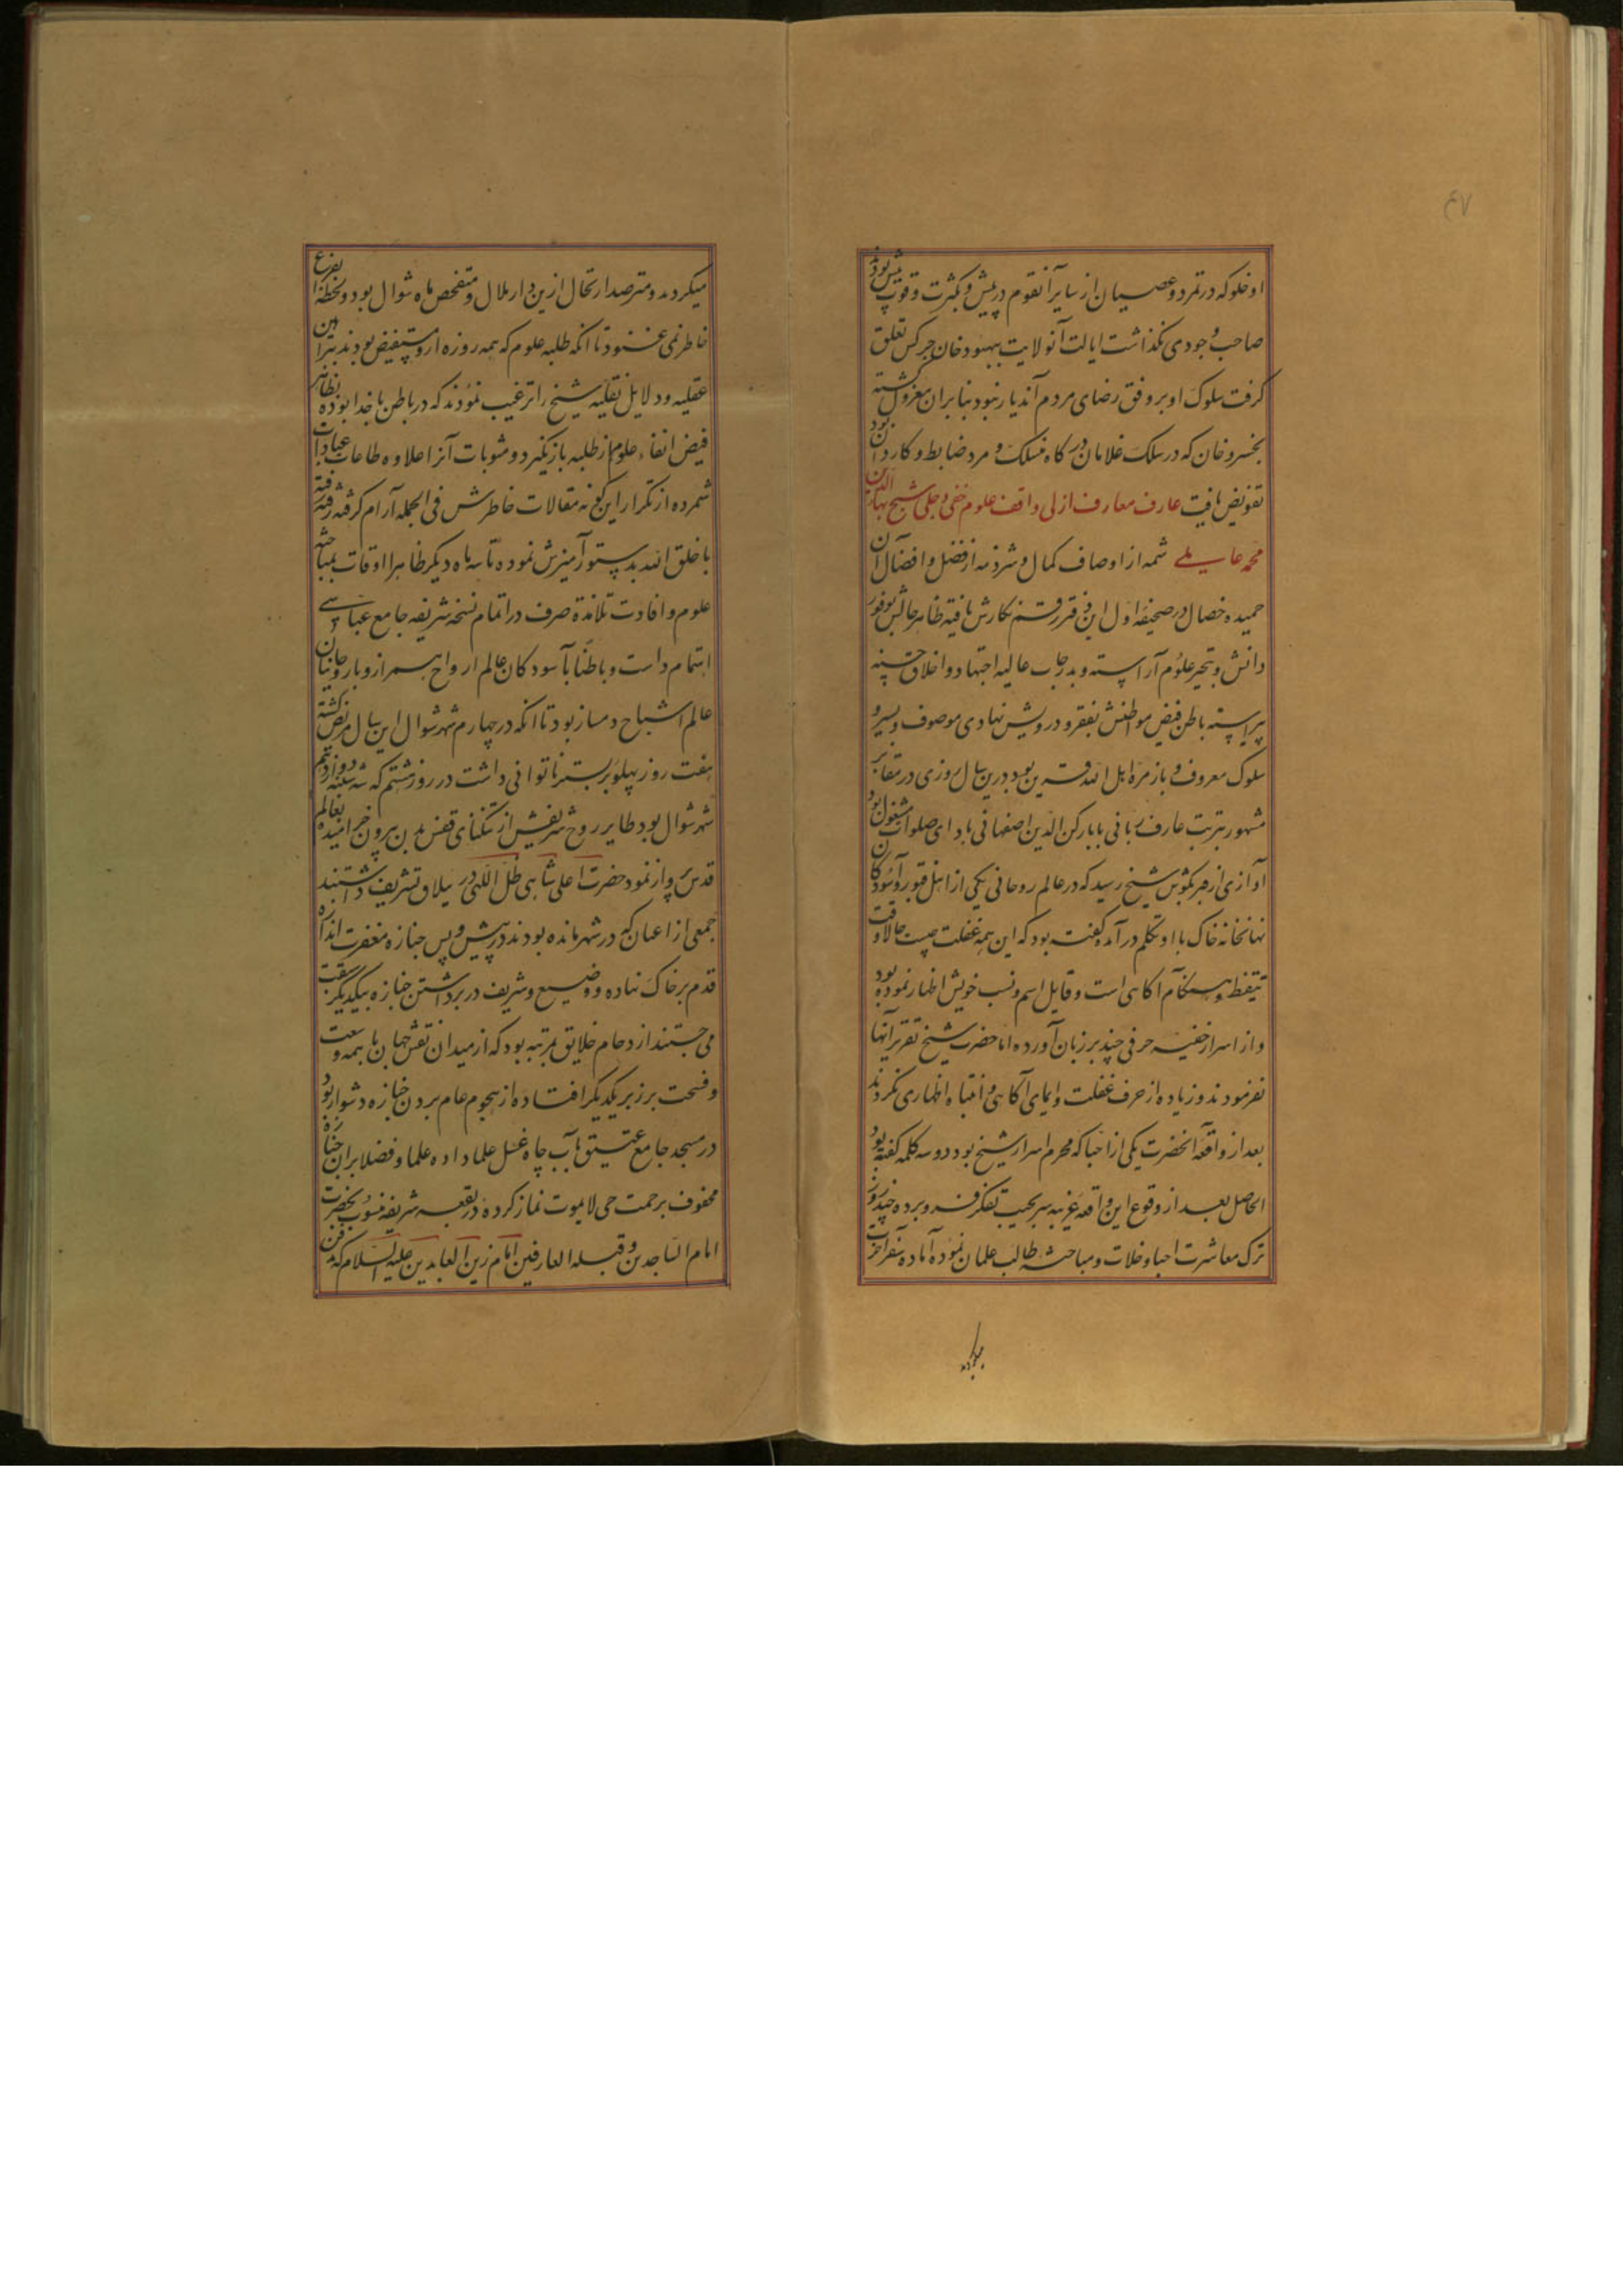 ۴۷
اوخلوکه در تمرد و عصیان از سایر آنقوم در پیش و بکثرت و قوت بیش بود
صاحب وجودی نگذاشت ایالت آنولایت ببهبود خان چرکس تعلق
گرفت سلوک او بر وفق رضای مردم آندیار نبود بنابران معزول گشته
بخسرو خان که در سلک غلامان درگاه منسلک و مرد ضابط و کاردان بود
تفویض یافت عارف معارف ازلی واقف علوم خفی و جلی شیخ بهاء الدین
محمد عاملی شمه از اوصاف کمال و شرذمه از فضل و افضال آن
حمیده خصال در صحیفه اول این دفتر رقم نگارش یافته ظاهر حالش بوفور
دانش و تبحر علوم آراسته و بدرجات عالیه اجتهاد و اخلاق حسنه
پیراسته باطن فیض مواطنش بفقر و درویش نهادی موصوف و بسیر و
سلوک معروف و با زمره اهل الله قرین بود درین سال روزی در مقابر
مشهور بتربت عارف ربانی بابا رکن الدین اصفهانی بادای صلوات مشغول بود
آوازی از قبر بگوش شیخ رسید که در عالم روحانی یکی از اهل قبور و آسودگان
نهانخانه خاک با او تکلم درآمده گفته بود که این همه غفلت چیست حالا وقت
تیقظ و هنگام آگاهی است و قایل اسم و نسب خویش اظهار نموده بود
و از اسرار خفیه حرفی چند بر زبان آورده اما حضرت شیخ تقریر آنها
نفرمودند و زیاده از حرف غفلت و ایمای آگاهی و انتباه اظهاری نکردند
بعد از واقعه آنحضرت یکی از احبا که محرم اسرار شیخ بود دو سه کلمه گفته بود
الحاصل بعد از وقوع این واقعه غریبه سر بجیب تفکر فرو برده چند روز
ترک معاشرت احبا و خلات و مباحثه طالب علمان نموده آماده سفر آخرت
میکردند
میکردند و مترصد ارتحال ازین دار ملال و متفحص ماه شوال بود و لحظه بفراغ
خاطر نمی غنود تا آنکه طلبه علوم که همه روزه ازو مستفیض بودند ببراهین
عقلیه و دلایل نقلیه شیخ را ترغیب نمودند که در باطن با خدا بوده بظاهر
فیض القاء علوم از طلبه بازنگیرد و مثوبات آنرا علاوه طاعات و عبادات
شمرده از تکرار این گونه مقالات خاطرش فی الجمله آرام گرفته رفته رفته
با خلق الله بدستور آمیزش نموده تا سه ماه دیگر ظاهرا اوقات بمباحثه
علوم و افادت تلامذه صرف در اتمام نسخه شریفه جامع عباسی
اهتمام داشت و باطنا با آسودگان عالم ارواح همراز و با روحانیان
عالم اشباح دمساز بود تا آنکه در چهارم شهر شوال این سال مریض گشته
هفت روز پهلو بر بستر ناتوانی داشت در روز هشتم که سه شنبه دوازدهم
شهر شوال بود طایر روح شریفش از تنگنای قفس بدن بیرون خرامیده بعالم
قدس پرواز نمود حضرت اعلی شاهی ظل اللهی در ییلاق تشریف داشتند
جمعی از اعیان که در شهر مانده بودند در پیش و پس جنازه مغفرت اندازه
قدم بر خاک نهاده و وضیع و شریف در برداشتن جنازه بیکدیگر سبقت
می جستند ازدحام خلایق بمرتبه بود که از میدان نقش جهان با همه وسعت
و فسحت بر زبر یکدیگر افتاده از هجوم عام بردن جنازه دشوار بود
در مسجد جامع عتیق بآب چاه غسل علما داده علما و فضلا بران جنازه
محفوف برحمت حی لایموت نماز کرده در بقعه شریفه منسوب بحضرت
امام الساجدین و قبله العارفین امام زین العابدین علیه السلام که مدفن